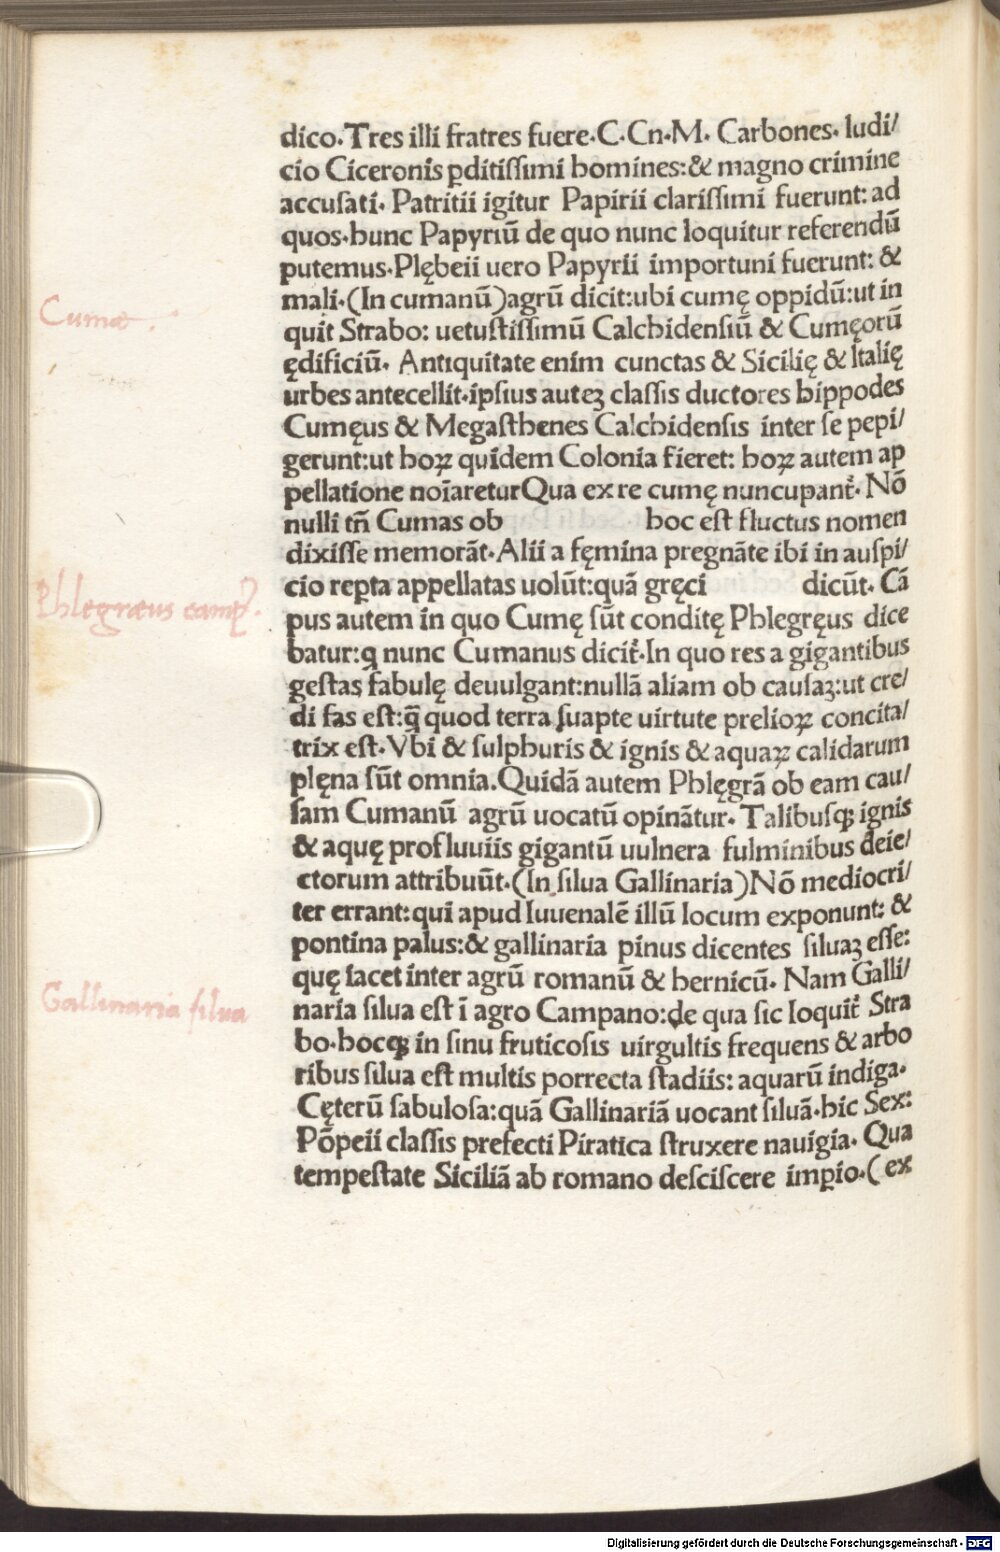 dico. Tres illi fratres fuere. C. Cn. M. Carbones. Iudi/
cio Ciceronis ꝑditiſſimi homines: & magno crimine
accuſati. Patritii igitur Papirii clariſſimi fuerunt: ad
quos. hunc Papyriū de quo nunc loquitur referendū
putemus. Plębeii uero Papyrii importuni fuerunt: &
mali. (In cumanū) agrū dicit: ubi cumę oppidū: ut in
quit Strabo: uetuſtiſſimū Calchidenſiū & Cumęorū
ędificiū. Antiquitate enim cunctas & Sicilię & Italię
urbes antecellit. ipſius auteꝫ claſſis ductores hippodes
Cumęus & Megaſthenes Calchidenſis inter ſe pepi/
gerunt: ut hoꝝ quidem Colonia fieret: hoꝝ autem ap
pellatione noīaretur Qua ex re cumę nuncupant᷑. Nō
nulli tñ Cumas ob hoc eſt fluctus nomen
dixiſſe memorāt. Alii a fęmina pregnāte ibi in auſpi/
cio reꝑta appellatas uolūt: quā gręci dicūt. Cā
pus autem in quo Cumę ſūt conditę Phlegręus dice
batur: ꝗ nunc Cumanus dicit᷑. In quo res a gigantibus
geſtas fabulę deuulgant: nullā aliam ob cauſaꝫ: ut cre/
di fas eſt: ꝗ̄ quod terra ſuapte uirtute prelioꝝ concita/
trix eſt. Vbi & ſulphuris & ignis & aquaꝝ calidarum
plęna ſūt omnia. Quidā autem Phlęgrā ob eam cau/
ſam Cumanū agrū uocatū opinātur. Talibuſꝗ; ignis
& aquę profluuiis gigantū uulnera fulminibus deie/
ctorum attribuūt. (In ſilua Gallinaria) Nō mediocri/
ter errant: qui apud Iuuenalē illū locum exponunt: &
pontina palus: & gallinaria pinus dicentes ſiluaꝫ eſſe:
quę iacet inter agrū romanū & hernicū. Nam Galli/
naria ſilua eſt ī agro Campano: de qua ſic loquit᷑ Stra
bo. hocꝗ; in ſinu fruticoſis uirgultis frequens & arbo
ribus ſilua eſt multis porrecta ſtadiis: aquarū indiga.
Cęterū ſabuloſa: quā Gallinariā uocant ſiluā. hic Sex:
Pōpeii claſſis prefecti Piratica ſtruxere nauigia. Qua
tempeſtate Siciliā ab romano deſciſcere imꝑio. (ex
Cumae.
Phlegræus camp⁹.
Gallinaria ſilua
Digitalisierung gefördert durch die Deutsche Forschungsgemeinschaft - DFG